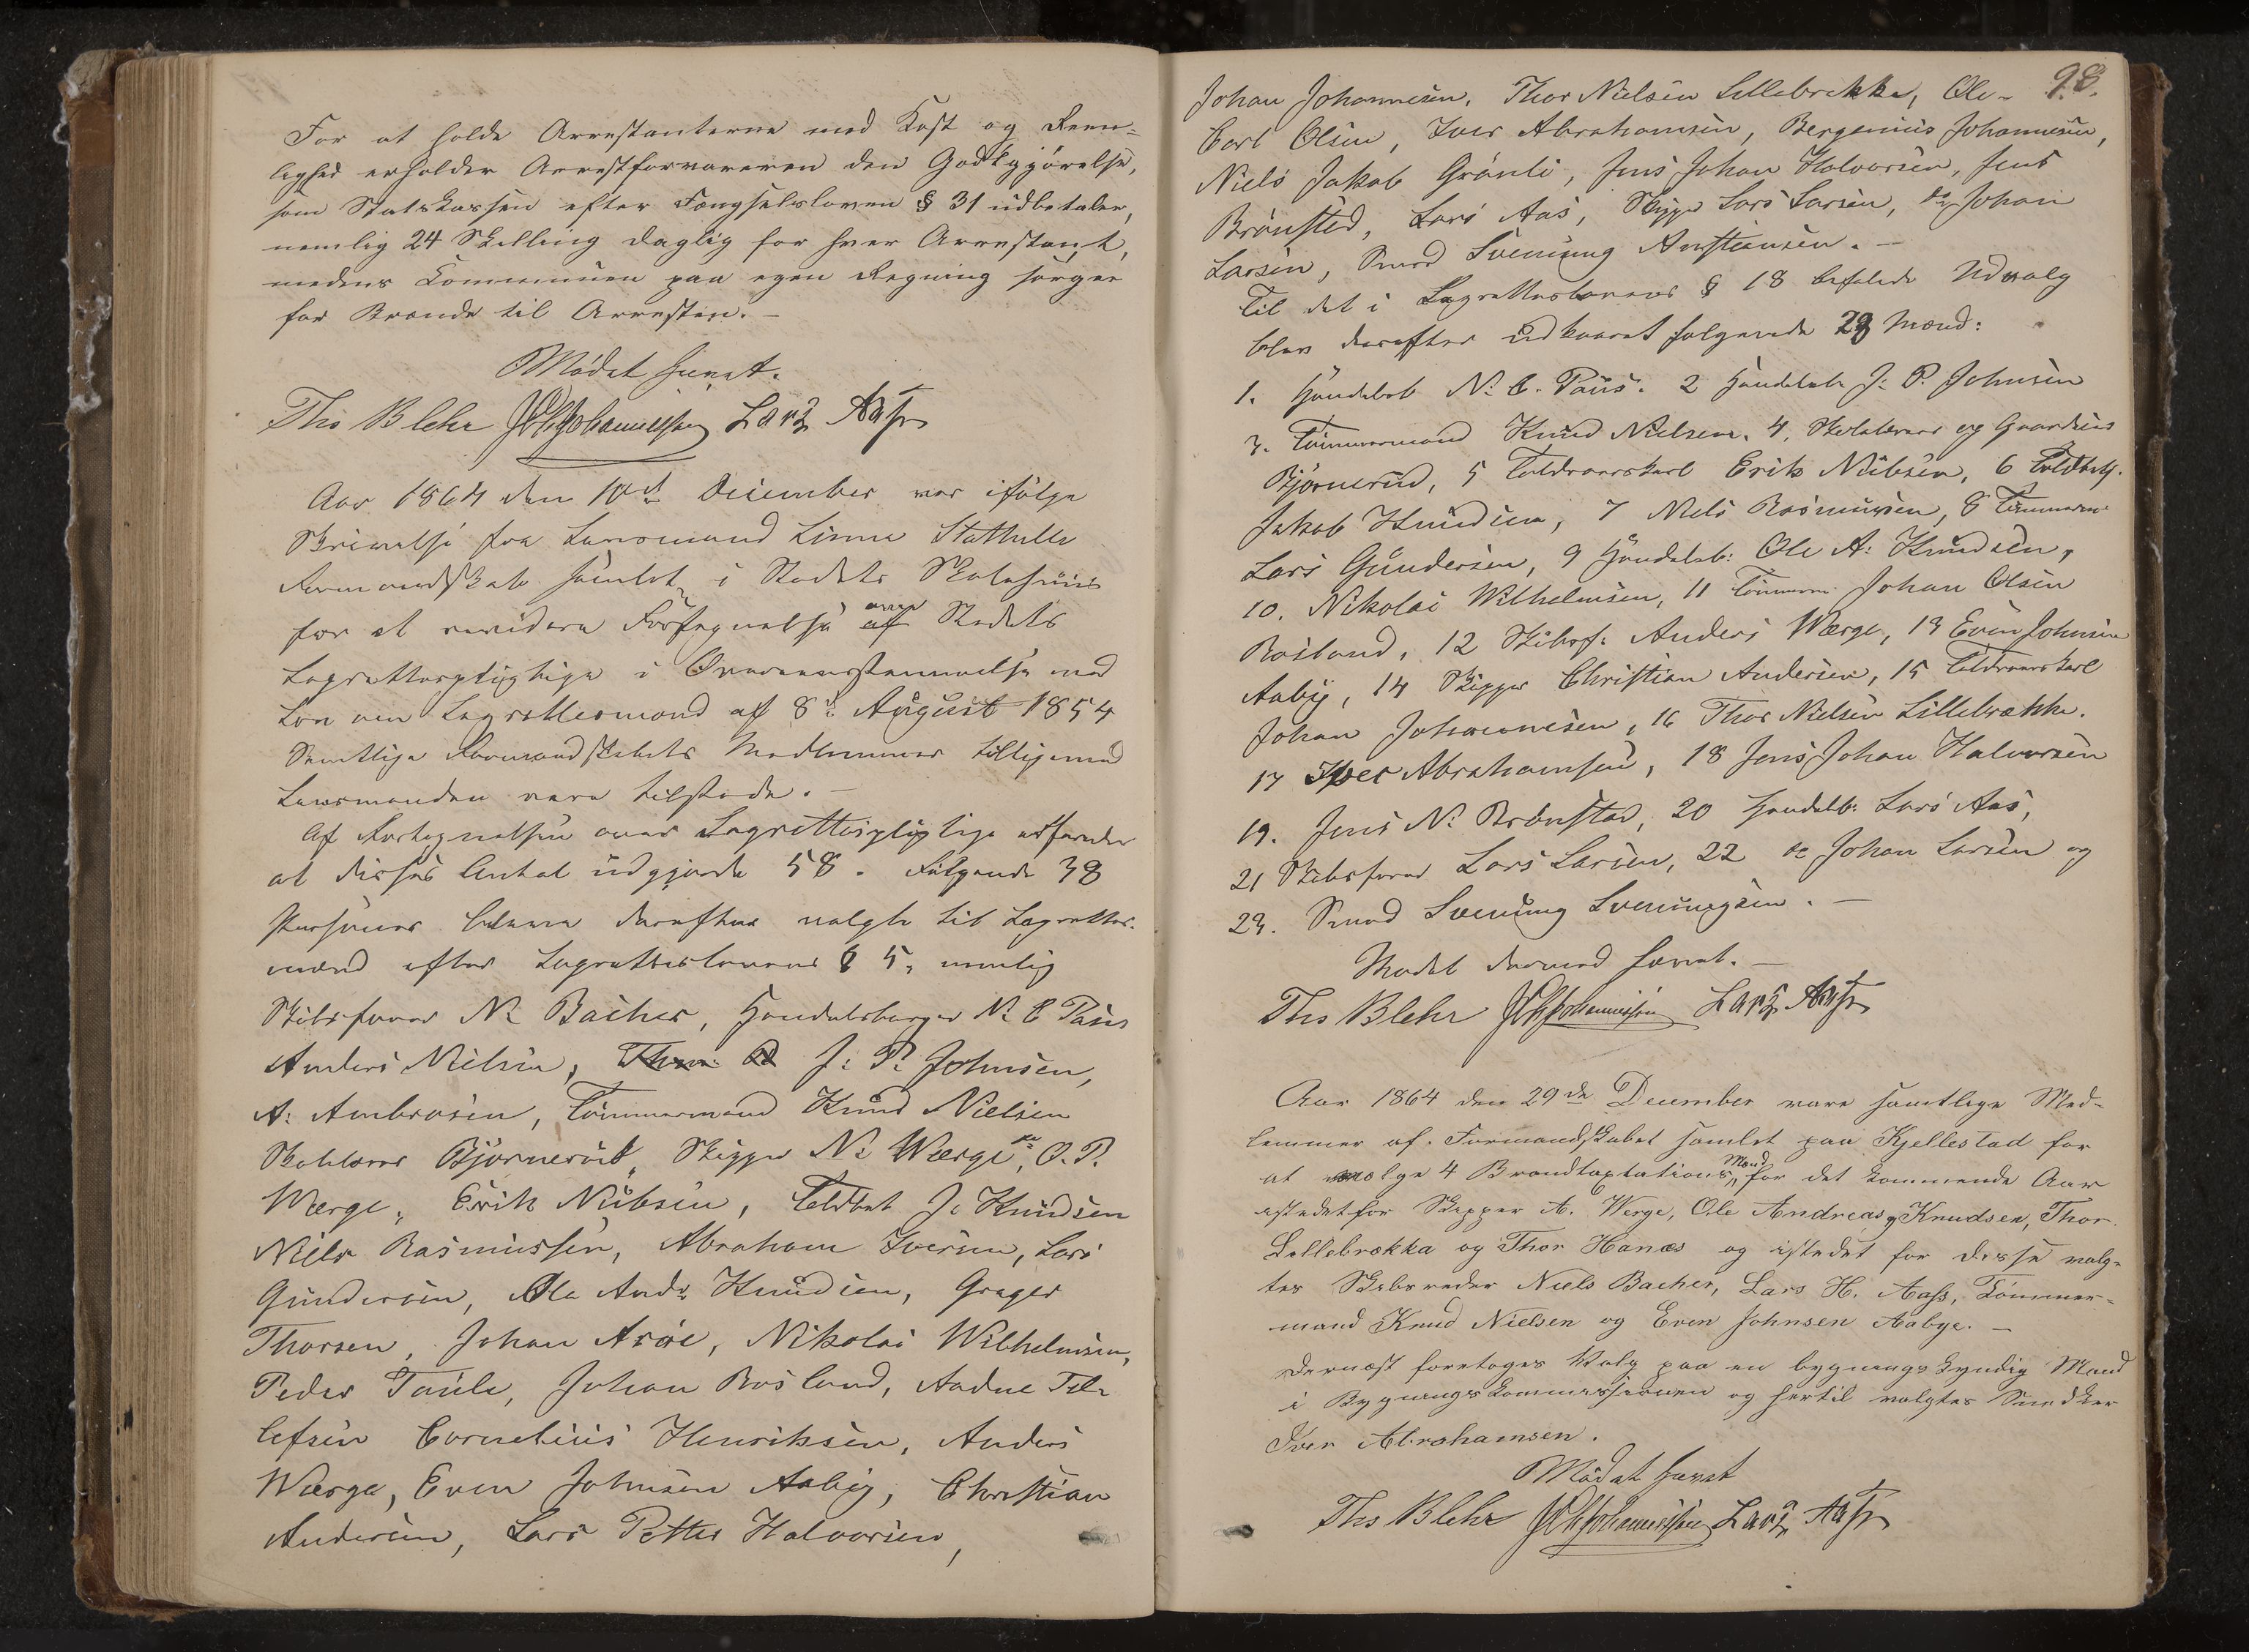 For at holde Arrestanterne med Kost og Reen-
lighed erholder Arrestforvareren den Godtgjørelse,
som Statskassen efter Fængselsloven § 31 udbetaler,
nemlig 24 Skilling daglig for hver Arrestant,
medens Communen paa egen Regning sørger
for Brænde til Arresten. —
Mødet hævet.
Ths Blehr J Chr Johannessen Lars Aass
Aar 1864 den 10de December var ifølge
Skrivelse fra Lensmand Linne Stathelle
Formandskab samlet i Stedets Skolehuus
for at revidere Fortegnelse af over Stedets
Lagrettespligtige i Overeensstemmelse med
Lov om Lagrettesmænd af 8de August 1854
Samtlige Formandskabets Medlemmer tilligemed
Lensmanden vare tilstede. —
Af Fortegnelsen over Lagrettespligtige erfaredes
at disses Antal udgjorde 58. Følgende 38
Personer bleve derefter valgte til Lagrettes-
mænd efter Lagrettesloven § 5, nemlig
Skibsfører N. Bacher, Handelsborger N. C. Paus
Anders Nielsen, J: P: Johnsen,
A: Ambrosen, Tømmermand Knud Nielsen
Skolelærer Bjørnerud, Skipper N: Werge, do O. P.
Werge, Erik Nielsen, Toldbet J: Knudsen
Niels Rasmussen, Abraham Iversen, Lars
Gundersen, Ole Andr: Knudsen, Greger
Thorsen, Johan Arøe, Nikolai Wilhelmsen,
Peder Taule, Johan Rosland, Aadne Tel-
lefsen Cornelius Henriksen, Anders
Werge, Even Johnsen Aaby, Christian
Andersen, Lars Petter Halvorsen,
98.
Johan Johannesen, Thor Nielsen Lillebrekke, Ole-
Carl Olsen, Iver Abrahamsen, Bergenius Johannesen,
Niels Jakob Grønli, Jens Johan Halvorsen, Jens
Brønsted, Lars Aas, Skipper Lars Larsen, do Johan
Larsen, Smed Svenung . —
Til det i Lagretteslovens § 18 befalede Udvalg
blev derefter udkaaret følgende 23 Mænd:
1. Handelsb N. C. Paus. 2 Handelsb J: P. Johnsen
3. Tømmermand Knud Nielsen. 4, Skolelærer og Gaardeier
Bjørnerud, 5 Toldroerskarl Erik Nielsen, 6 Toldbetj.
Jakob Knudsen, 7 Niels Rasmussen, 8 Tømmerm
Lars Gundersen, 9 Handelsb: Ole A: Knudsen,
10. Nikolai Wilhelmsen, 11 Tømmerm Johan Olsen
Rosland, 12 Skibsf: Anders Werge, 13 Even Johnsen
Aaby, 14 Skipper Christian Andersen, 15 Toldroerskarl
Johan Johannesen, 16 Thor Nielsen Lillebrekke.
17 Iver Abrahamsen, 18 Jens Johan Halvorsen
19. Jens N: Brønsted, 20 Handelb: Lars Aas,
21 Skibsfører Lars Larsen, 22 do Johan Larsen og
23. Smed Svenung Svenungsen. —
Mødet dermed hævet. —
Ths Blehr J Chr Johannessen Lars Aass
Aar 1864 den 29de December vare samtlige Med-
lemmer af Formandskabet samlet paa Kjellestad for
at vælge 4 Brandtaxtations Mænd for det kommende Aar
istedetfor Skipper A. Werge, Ole Andreas Knudsen, Thor
Lillebrækka og Thor Hanæs og istedet for disse valg-
tes Skibsreder Niels Bacher, Lars H. Aass, Tømmer-
mand Knud Nielsen og Even Johnsen Aabye. —
Dernæst foretoges Valg paa en bygningskyndig Mand
i Bygningskommissionen og hertil valgtes Snedker
Iver Abrahamsen.
Mødet hævet
Ths Blehr J Chr Johannessen Lars Aass